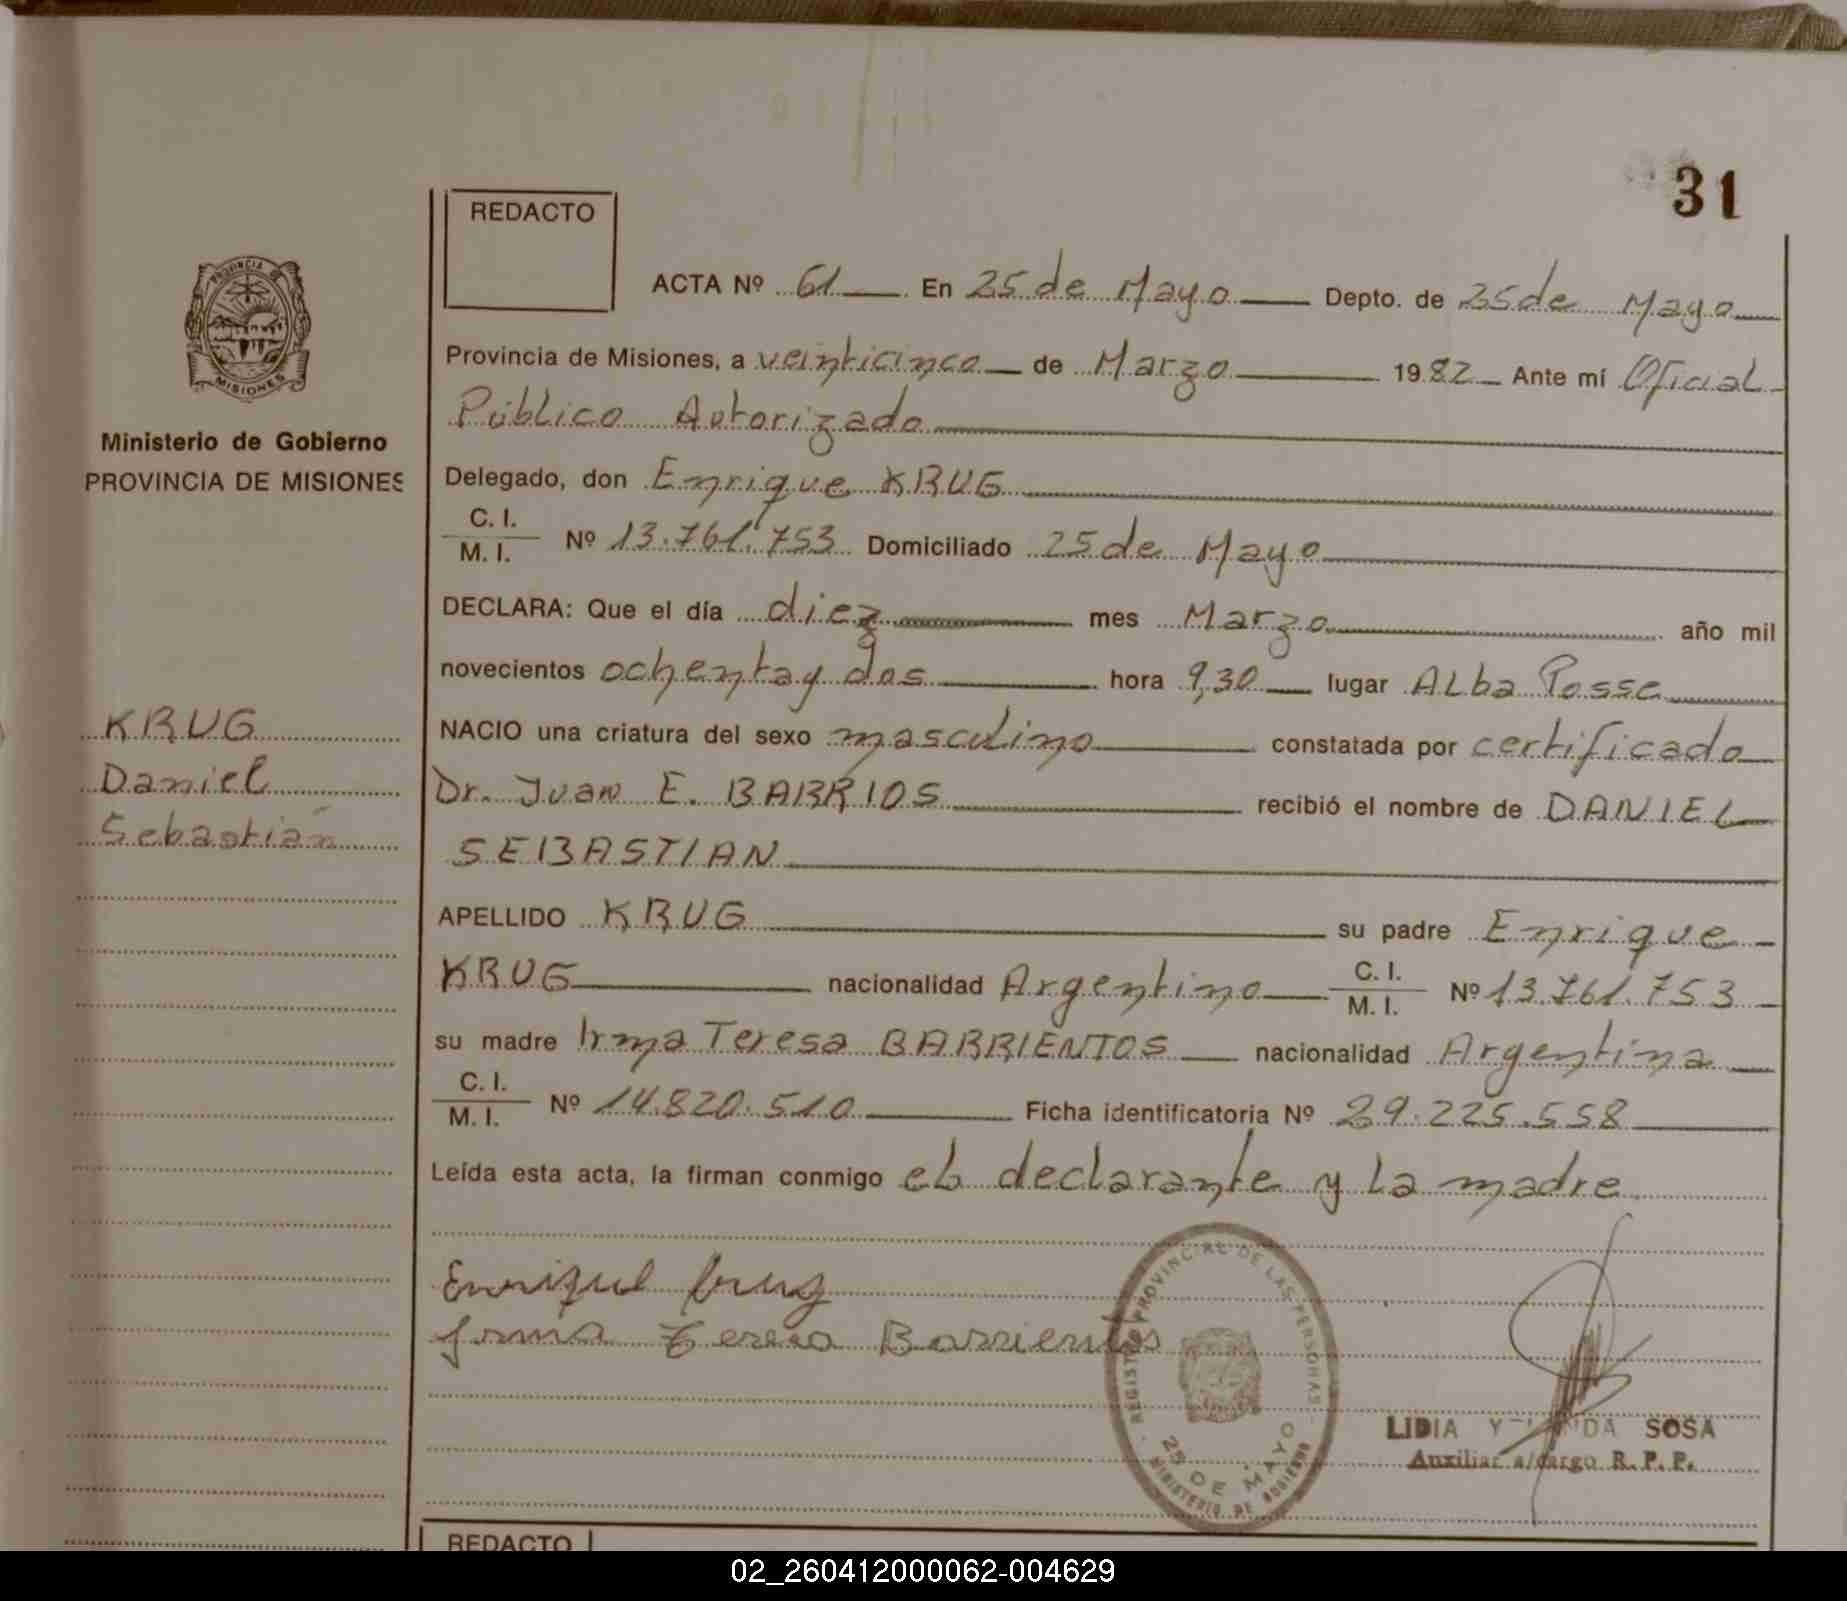 31
REDACTO
ACTA Nº 61 En 25 de Mayo Depto. de 25 de Mayo
PROVINCIA DE
MISIONES
Provincia de Misiones, a veinticinco de Marzo 1982 Ante mí Oficial
Público Autorizado
Ministerio de Gobierno
PROVINCIA DE MISIONES
Delegado, don Enrique KRUG
C. I.
M. I. Nº 13.761.753 Domiciliado 25 de Mayo
DECLARA: Que el día diez mes Marzo año mil
novecientos ochenta y dos hora 9,30 lugar Alba Posse
KRUG
Daniel
Sebastián
NACIO una criatura del sexo masculino constatada por certificado
Dr. Juan E. BARRIOS recibió el nombre de DANIEL
SEBASTIAN
APELLIDO KRUG su padre Enrique
KRUG nacionalidad Argentino C. I. M. I. Nº 13.761.753
su madre Irma Teresa BARRIENTOS nacionalidad Argentina
C. I.
M. I. Nº 14.820.510 Ficha identificatoria Nº 29.225.558
Leída esta acta, la firman conmigo el declarante y la madre
Enrique Krug
Irma Teresa Barrientos
REGISTRO PROVINCIAL DE LAS PERSONAS
25 DE MAYO
MINISTERIO DE GOBIERNO
LIDIA SOSA
Auxiliar a/cargo R. P. P.
REDACTO
02_260412000062-004629